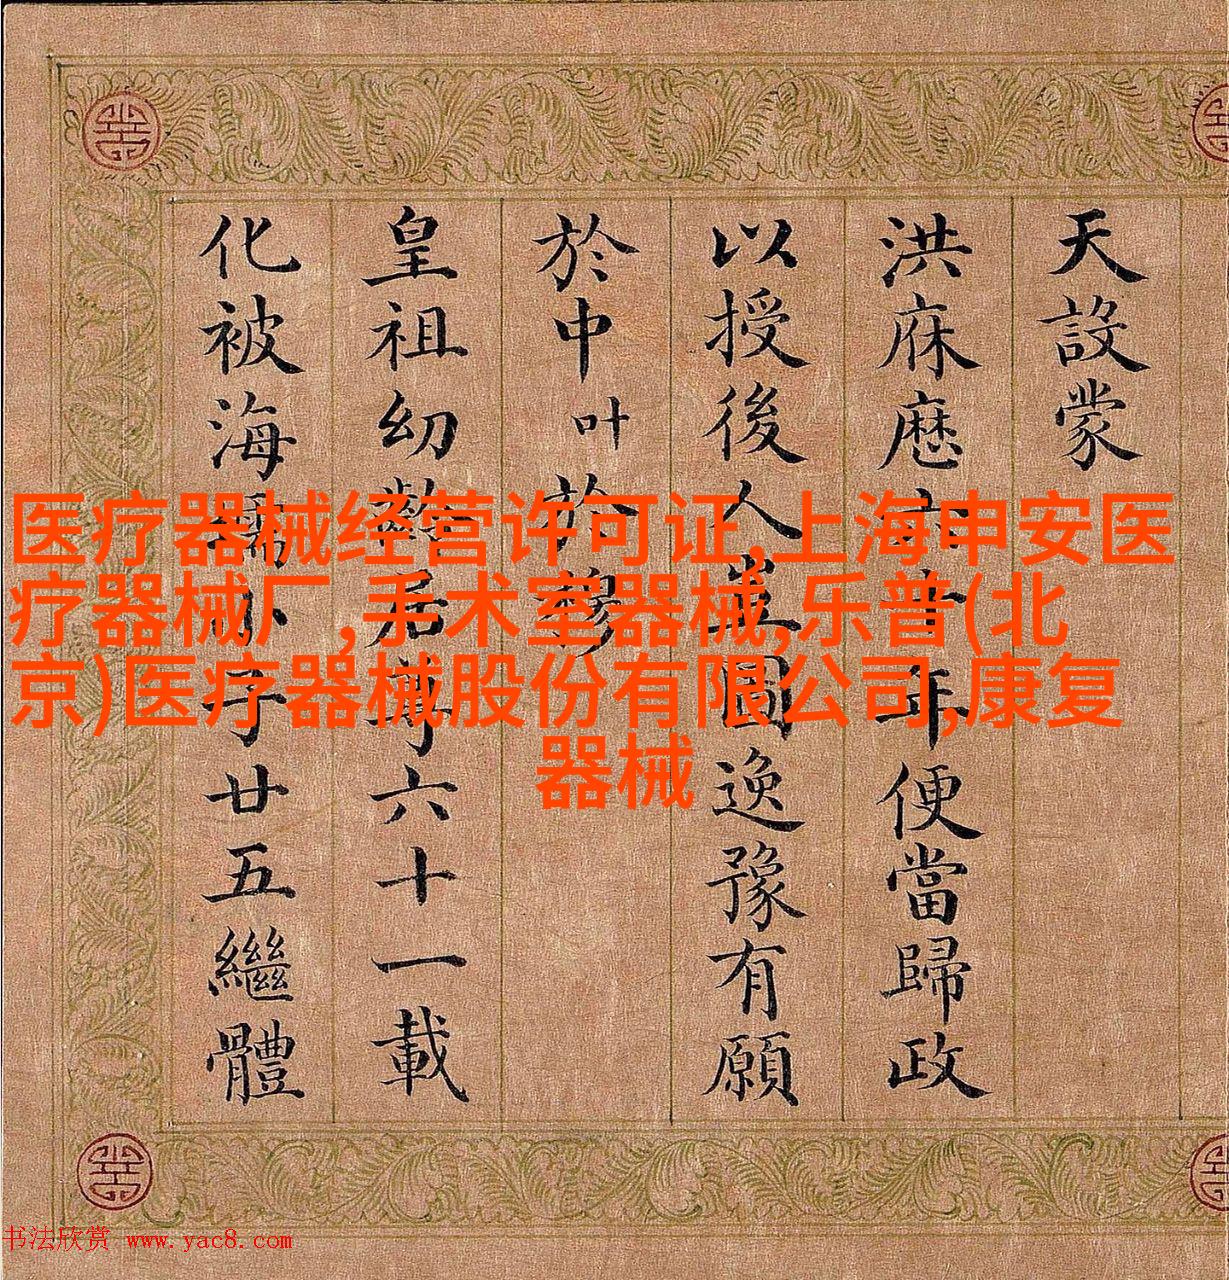 天設蒙
洪庥厯六十年便當歸政
以授後人豈圖逸豫有願
於中叶於穆
皇祖幼齡居尊六十一載
化被海子廿五繼體
医疗器械经营许可证,上海申安医
疗器械厂,手术室器械,乐普(北
京)医疗器械股份有限公司,康复
器械
书法欣赏 www.yac8.com